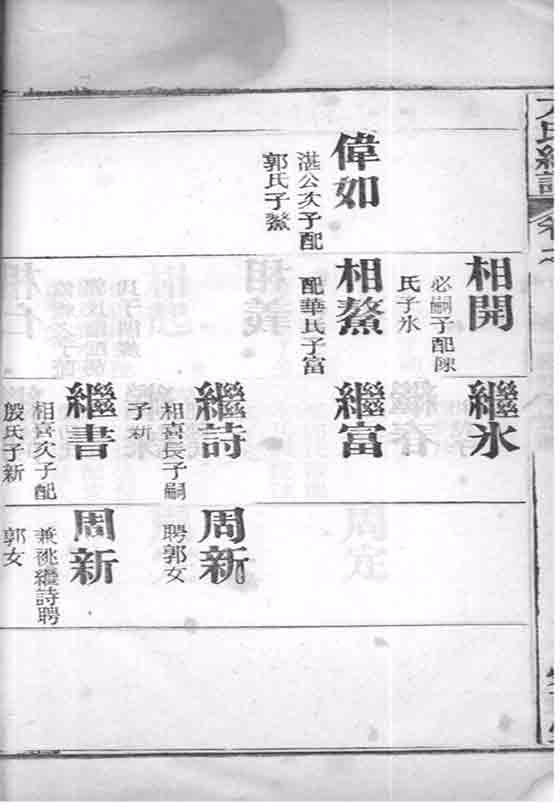 偉如
湛公次子配
郭氏子鰲
相開
必嗣子配陳
氏子氷
相鰲
配華氏子富
繼氷
繼富
繼詩
相喜長子嗣
子新
繼書
相喜次子配
殷氏子新
周新
聘郭女
周新
兼祧繼詩聘
郭女